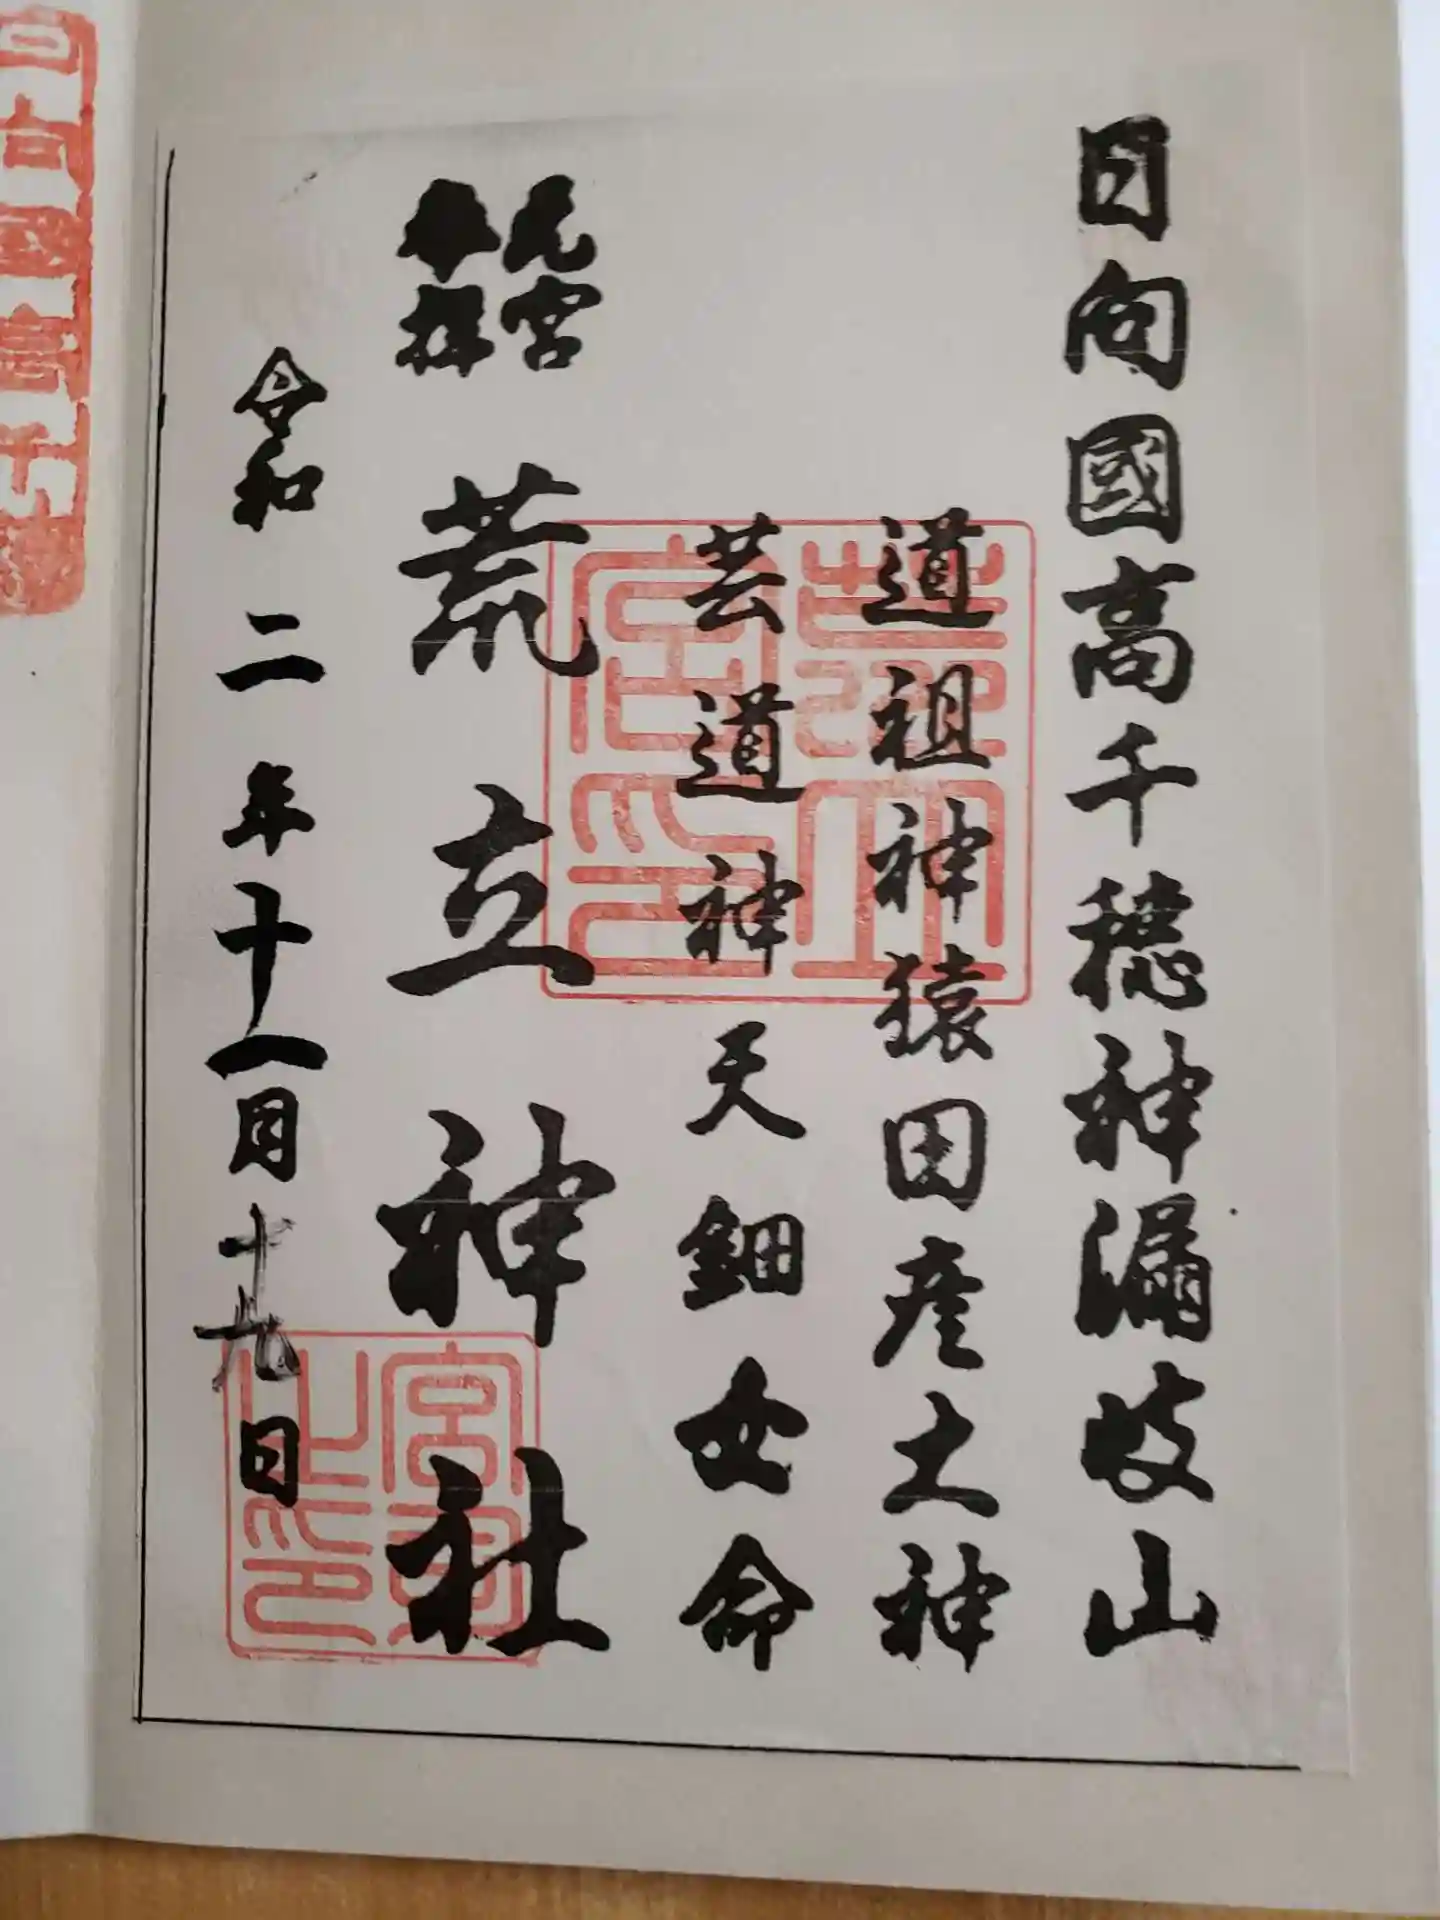 日向國高千穂神漏岐山
道祖神猿田彦土神
芸道神天鈿女命
元宮
奉拝
荒立神社
令和二年十一月十九日
荒立
宮印
宮司
之印